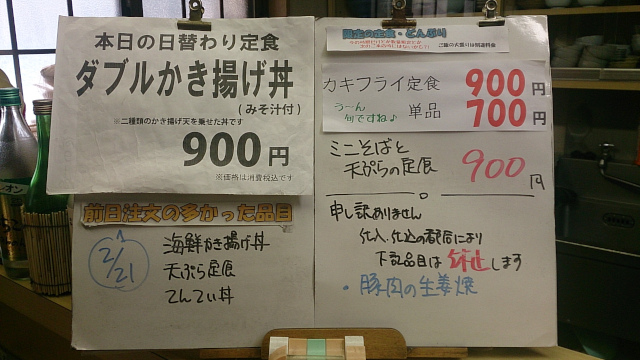 本日の日替わり定食
ダブルかき揚げ丼
(みそ汁付)
※二種類のかき揚げ天を乗せた丼です
900円
※価格は消費税込です
前日注文の多かった品目
2/21
海鮮かき揚げ丼
天ぷら定食
てんてい丼
限定の定食・どんぶり
ご飯の大盛りは別途料金
カキフライ定食 900円
うーん
何ですね♪
単品 700円
ミニそばと
天ぷらの定食 900円
申し訳ありません
仕入・仕込の都合により
下記品目は
します
・豚肉の生姜焼